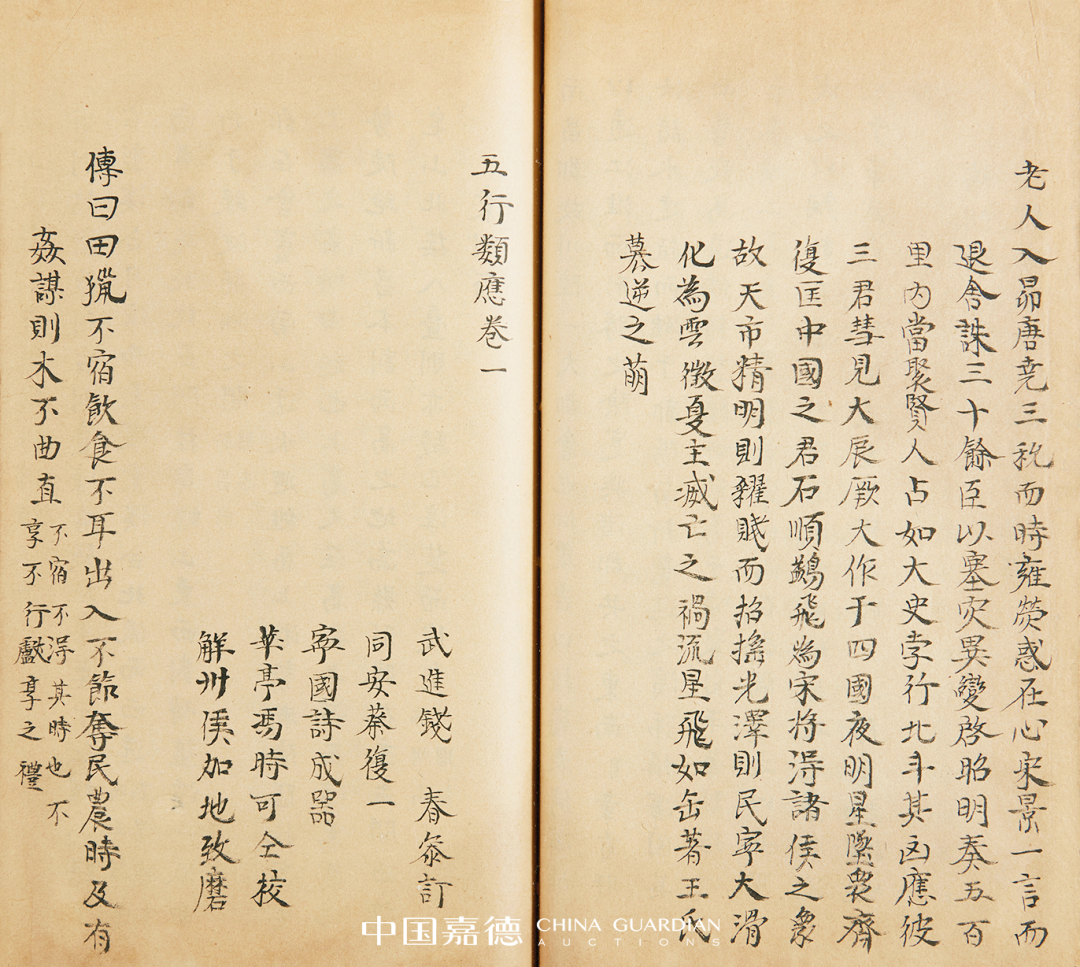 老人入昴唐堯三稔而時雍熒惑在心宋景一言而
退舍誅三十餘臣以塞灾異變啓昭明奏五百
里内當聚賢人占如大史孛行北斗其凶應彼
三君彗見大辰厥大作于四國夜明星墜衆齊
復匡中國之君石順鷁飛為宋將得諸侯之象
故天市精明則糴賤而招搖光澤則民寧大滑
化為雲徵夏主滅亡之禍流星飛如缶著王氏
慕逆之萌
五行類應卷一
武進錢 春叅訂
同安蔡復一
寧國詩成器
華亭馮時可仝校
解州侯加地致磨
傳曰田獵不宿飲食不耳出入不節奪民農時及有
姦謀則木不曲直不宿不得其時也不
享不行獻享之禮
中国嘉德 CHINA GUARDIAN
AUCTIONS